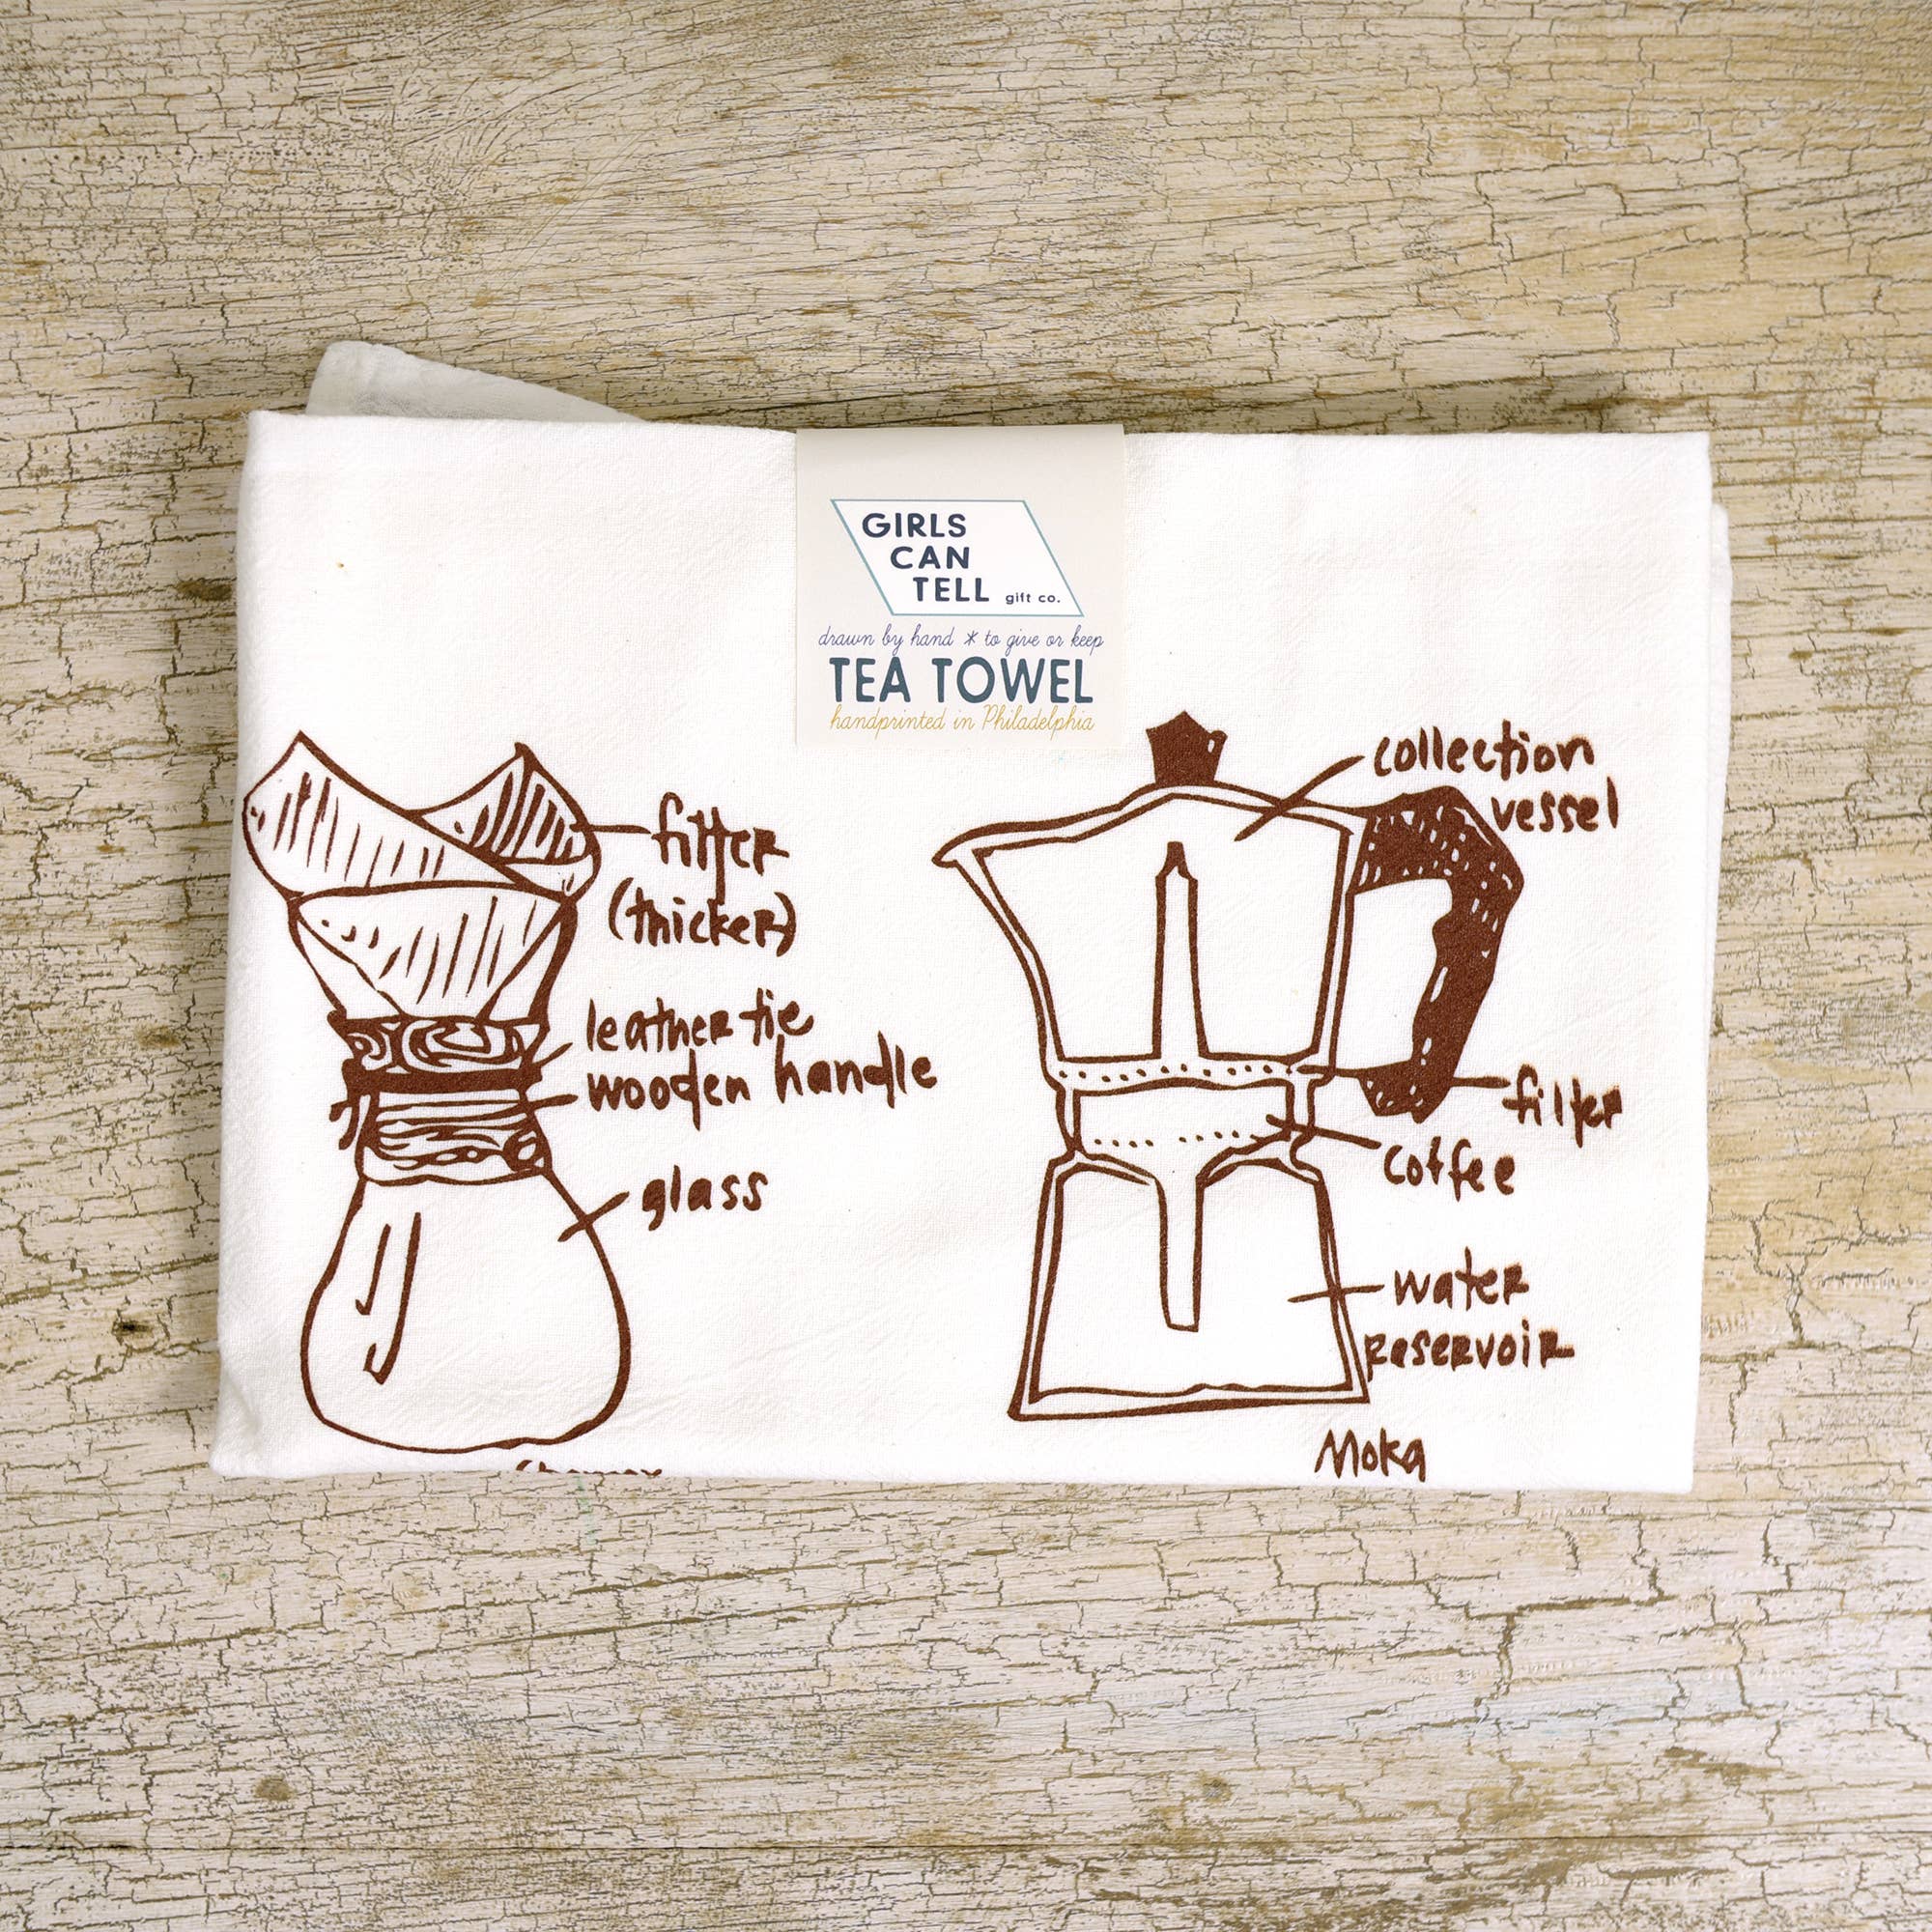 GIRLS
CAN
TELL gift co.
drawn by hand * to give or keep
TEA TOWEL
handprinted in Philadelphia
filter
(thicker)
leather tie
wooden handle
glass
collection
vessel
filter
coffee
water
reservoir
Moka